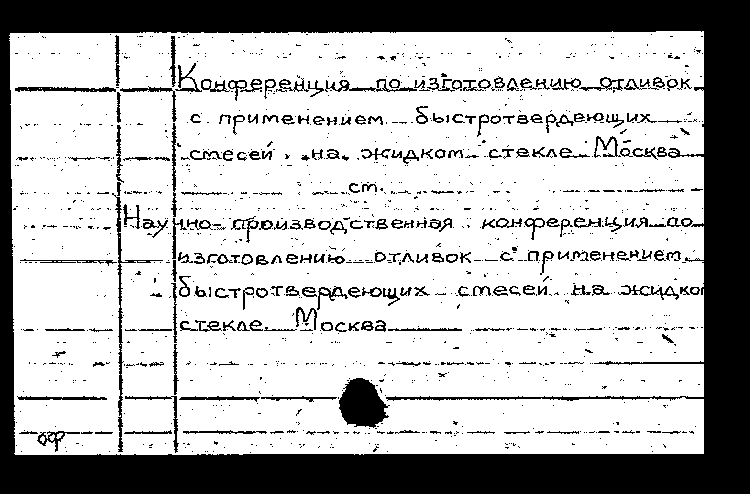 Конференция по изготовлению отливок
с применением быстротвердеющих
смесей на жидком стекле Москва
см.
Научно-производственная конференция по
изготовлению отливок с применением
быстротвердеющих смесей на жидком
стекле. Москва
оф